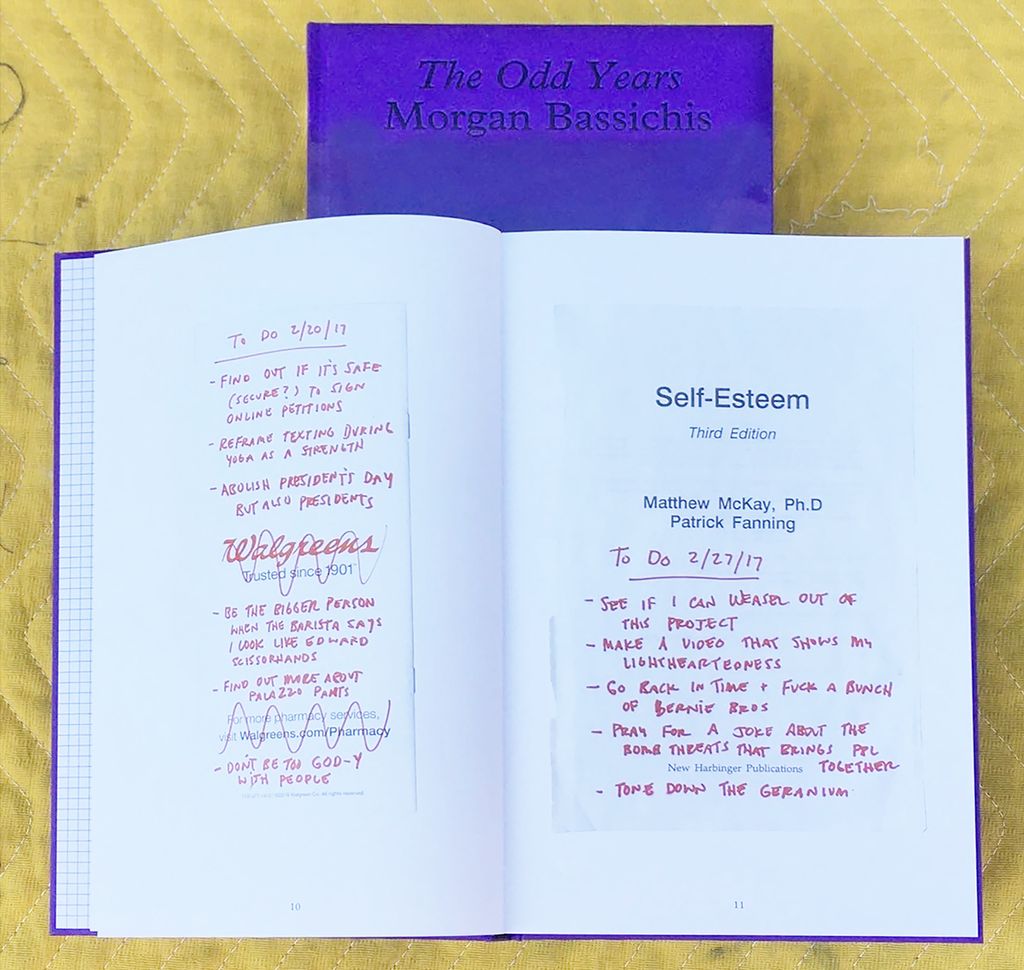 The Odd Years
Morgan Bassichis
To Do 2/20/17
- FIND OUT IF IT'S SAFE
(SECURE?) TO SIGN
ONLINE PETITIONS
- REFRAME TEXTING DURING
YOGA AS A STRENGTH
- ABOLISH PRESIDENT'S DAY
BUT ALSO PRESIDENTS
Walgreens
Trusted since 1901
- BE THE BIGGER PERSON
WHEN THE BARISTA SAYS
I LOOK LIKE EDWARD
SCISSORHANDS
- FIND OUT MORE ABOUT
PALAZZO PANTS
For more pharmacy services,
visit Walgreens.com/Pharmacy
- DON'T BE TOO GOD-Y
WITH PEOPLE
All rights reserved.
10
Self-Esteem
Third Edition
Matthew McKay, Ph.D
Patrick Fanning
To Do 2/27/17
- SEE IF I CAN WEASEL OUT OF
THIS PROJECT
- MAKE A VIDEO THAT SHOWS MY
LIGHTHEARTEDNESS
- GO BACK IN TIME + FUCK A BUNCH
OF BERNIE BROS
- PRAY FOR A JOKE ABOUT THE
BOMB THREATS THAT BRINGS PPL
TOGETHER
New Harbinger Publications
- TONE DOWN THE GERANIUM
11